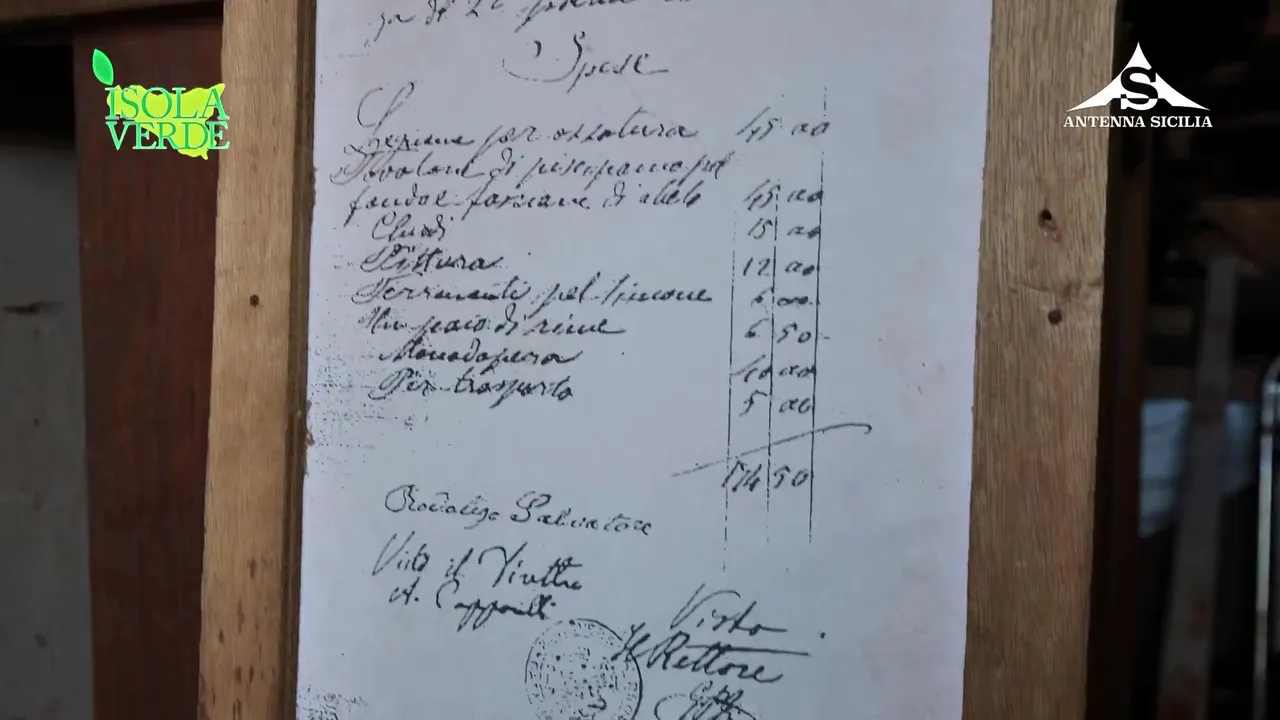 ISOLA
VERDE
S
ANTENNA SICILIA
Spese
Legname per ossatura 45 00
Tavolone di piscipano pel
fondo e forzame di abete 45 00
Chiodi 15 00
Pittura 12 00
Ferramenti pel timone 6 00
Un paio di rime 6 50
Manodopera 40 00
Per trasporto 5 00
174 50
Rodaligo Salvatore
Visto il
A.
Visto
Il Rettore